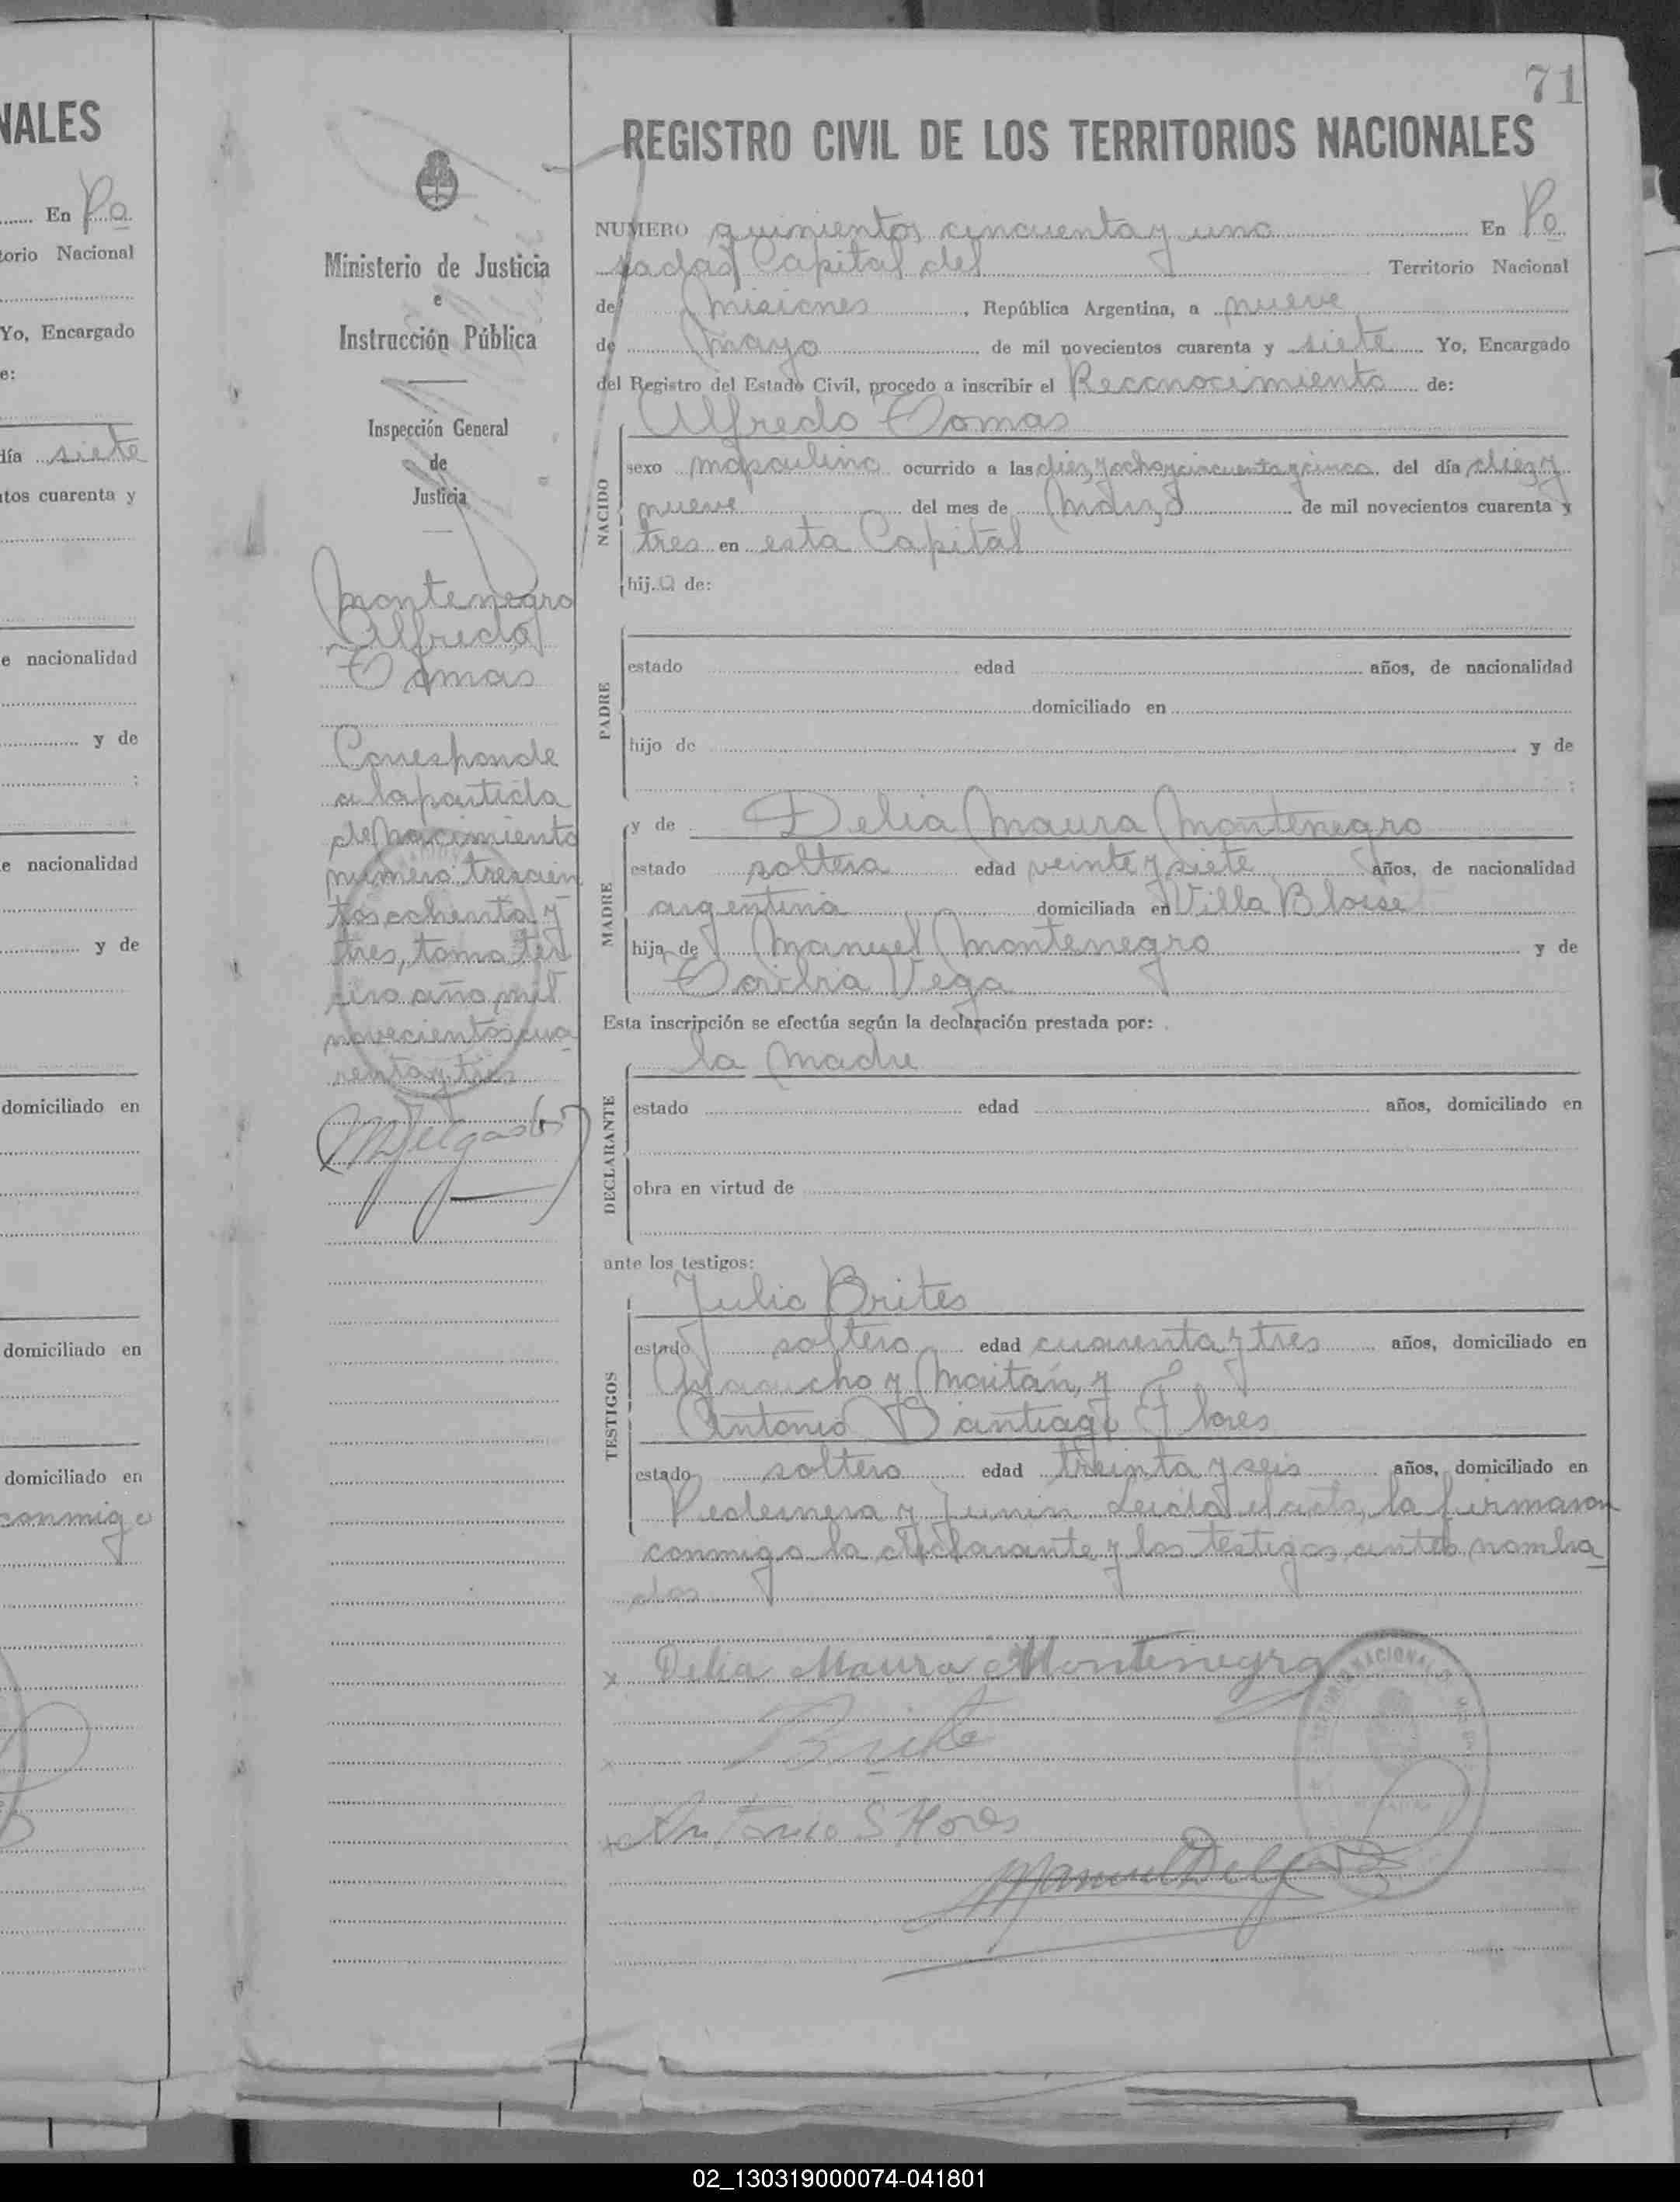 NALES
En Po
torio Nacional
Yo, Encargado
e:
día siete
ntos cuarenta y
e nacionalidad
y de
:
e nacionalidad
y de
domiciliado en
domiciliado en
domiciliado en
conmigo
Ministerio de Justicia
e
Instrucción Pública
Inspección General
de
Justicia
Montenegro
Alfredo
Tomás
Corresponde
a la partida
de Nacimiento
número trescien
tos ochenta y
tres, tomo ter
cero año mil
novecientos cua
renta y tres
71
REGISTRO CIVIL DE LOS TERRITORIOS NACIONALES
NUMERO quinientos cincuenta y uno En Po
sadas Capital del Territorio Nacional
de Misiones, República Argentina, a nueve
de Mayo de mil novecientos cuarenta y siete Yo, Encargado
del Registro del Estado Civil, procedo a inscribir el Reconocimiento de:
Alfredo Tomas
NACIDO
sexo masculino ocurrido a las diez y ocho y cincuenta y cinco del día diez y
nueve del mes de Marzo de mil novecientos cuarenta y
tres en esta Capital
hijo de:
PADRE
estado edad años, de nacionalidad
domiciliado en
hijo de y de
:
MADRE
y de Delia Maura Montenegro
estado soltera edad veinte y siete años, de nacionalidad
argentina domiciliada en Villa Blosse
hija de Manuel Montenegro y de
Vega
Esta inscripción se efectúa según la declaración prestada por:
la Madre
DECLARANTE
estado edad años, domiciliado en
obra en virtud de
ante los testigos:
TESTIGOS
Julio Brites
estado soltero edad cuarenta y tres años, domiciliado en
Ayacucho y Maitán, y
Antonio Santiago Flores
estado soltero edad treinta y seis años, domiciliado en
Pedernera y Junin Leida el acta, la firmaron
conmigo la declarante y los testigos antes nombra
dos
x Delia Maura Montenegro
x Brite
x Antonio S Flores
Manuel Delg
NACIONAL
02_130319000074-041801